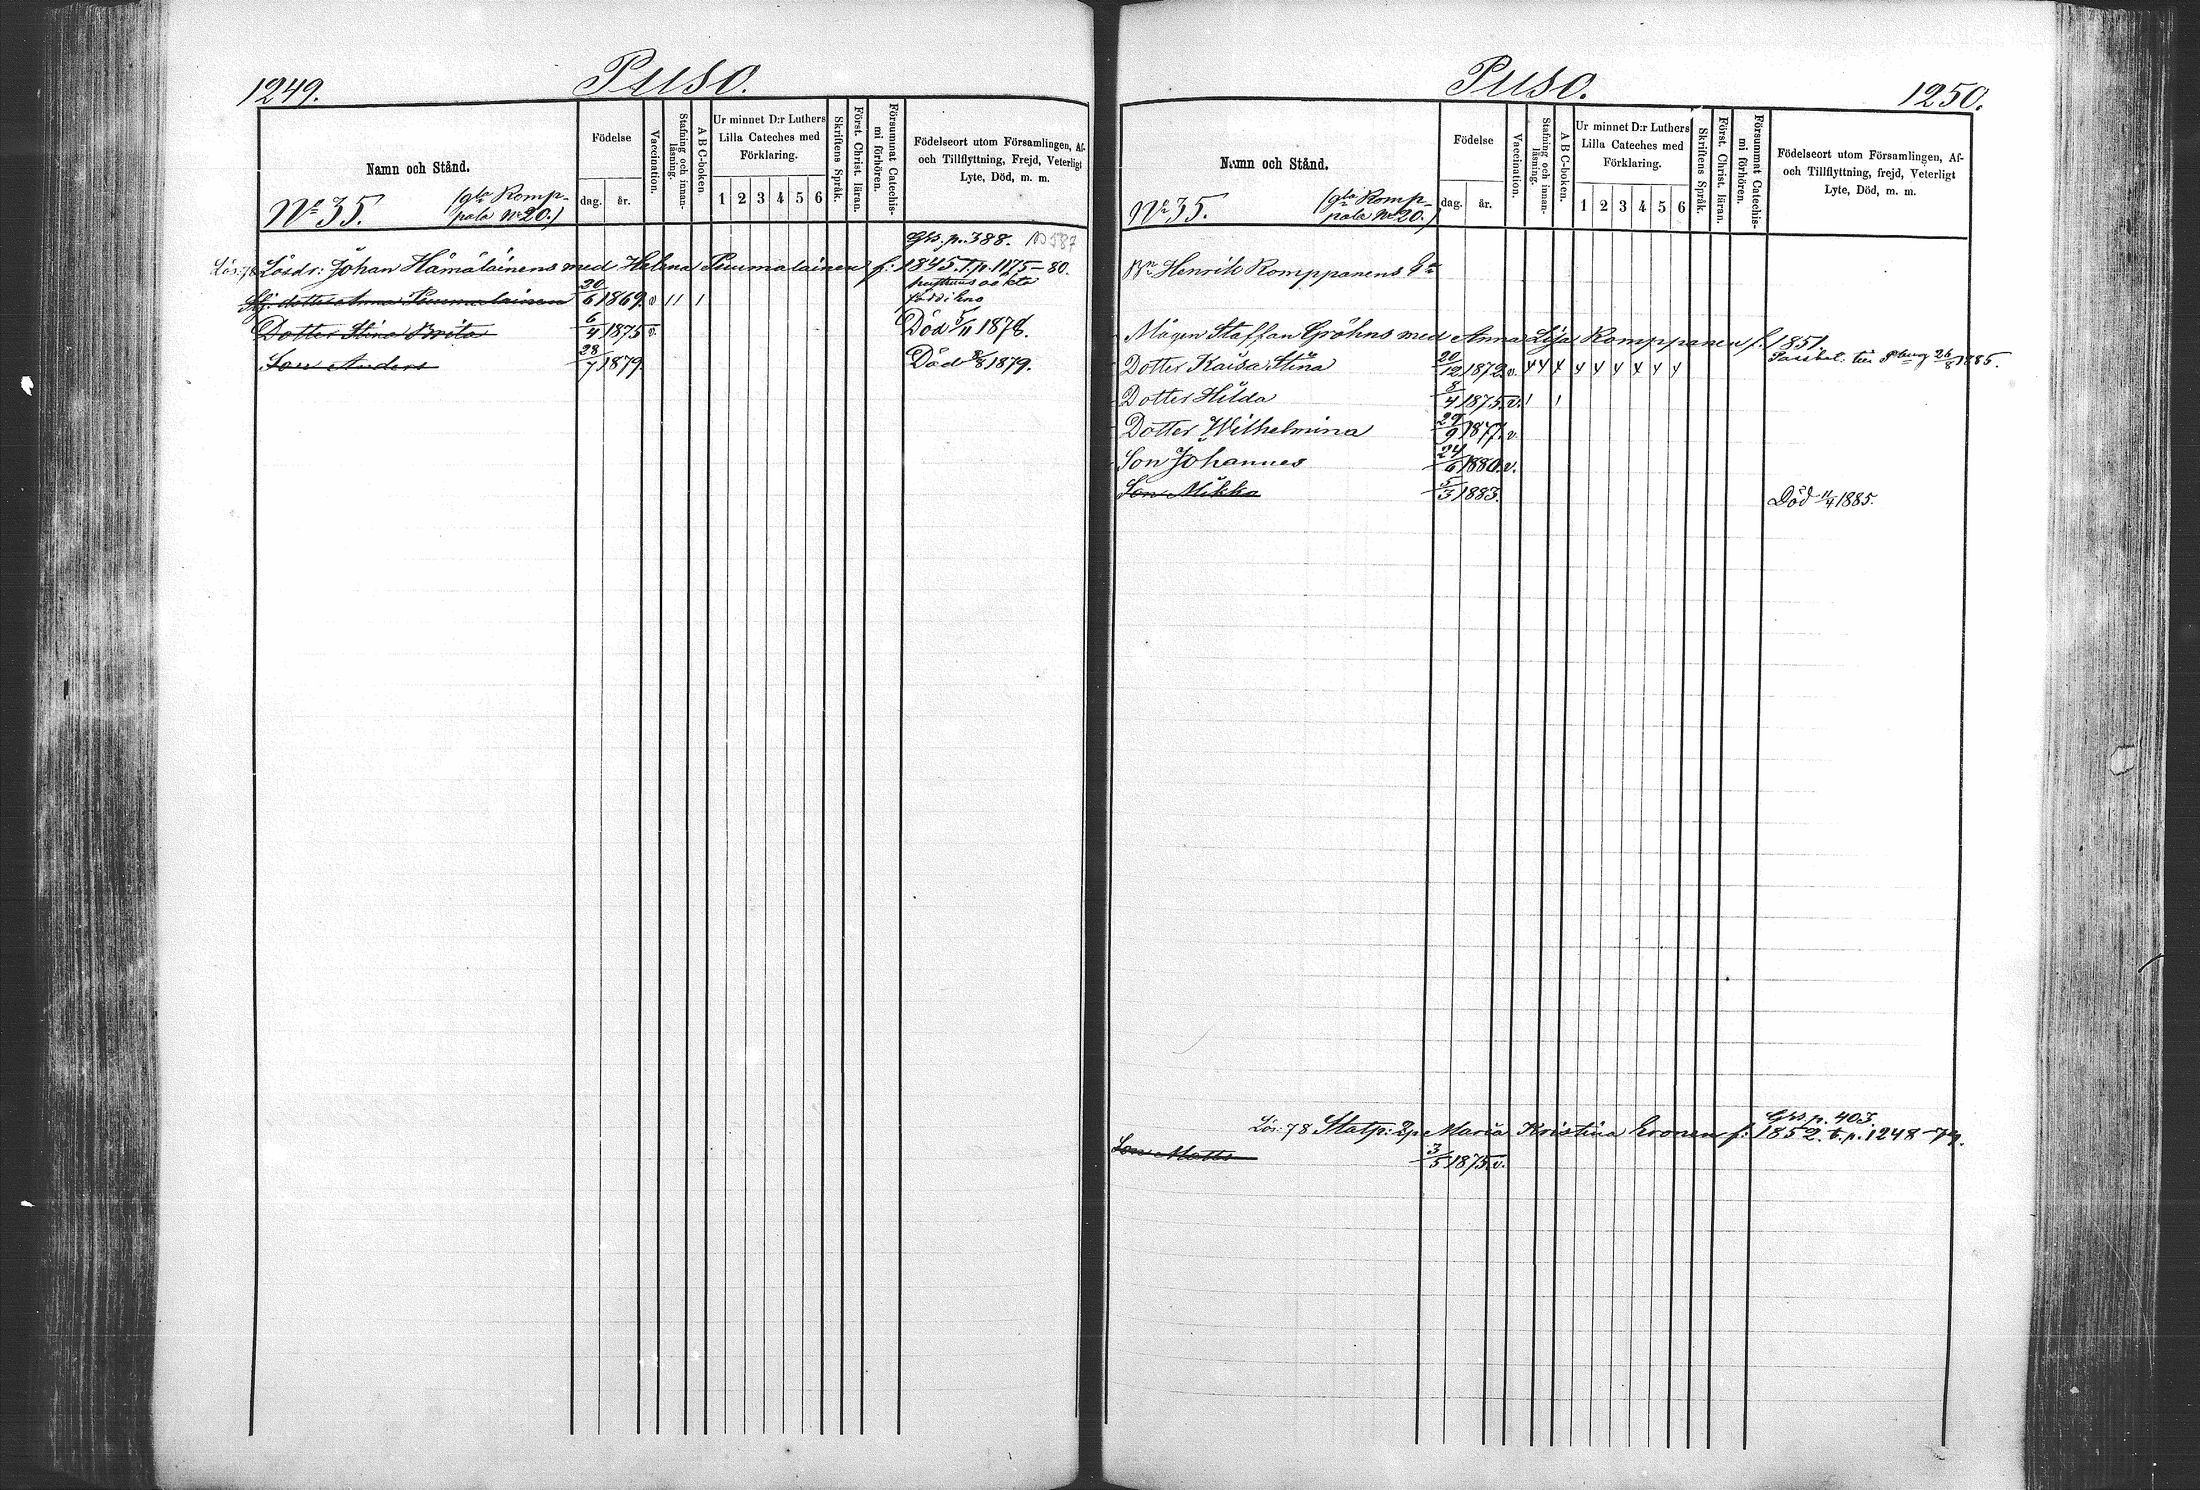 1249.
Puso.
Namn och Stånd.
Födelse
dag. år.
Vaccination.
Stafning och innanläsning.
A B C-boken
Ur minnet D:r Luthers
Lilla Cateches med
Förklaring.
1 2 3 4 5 6
Skriftens Språk.
Först. Christ. läran.
Försummat Catechismi förhören.
Födelseort utom Församlingen, Af-
och Tillflyttning, Frejd, Veterligt
Lyte, Död, m. m.
No 35.
(gla Romp-
pala No 20.)
Ghs. p. 388.
Lösdr: Johan Hämäläinens med Helena Puumalainen f: 1845. t. p. 1175-80.
dotter Anna Puumalainen 20/6 1869. v 11 1
Dotter Stina Brita 6/4 1875 v. Död 5/11 1878.
Son Anders 28/7 1879 Död 8/8 1879.
Puso.
1250.
Namn och Stånd.
Födelse
dag. år.
Vaccination.
Stafning och innanläsning.
A B C-boken.
Ur minnet D:r Luthers
Lilla Cateches med
Förklaring.
1 2 3 4 5 6
Skriftens Språk.
Först. Christ. läran.
Försummat Catechismi förhören.
Födelseort utom Församlingen, Af-
och Tillflyttning, frejd, Veterligt
Lyte, Död, m. m.
No 35.
(gla Romp-
pala No 20.)
Bn Henrik Romppanens
Mågen Staffan Gröhns med Anna Lisa Romppanen f. 1851.
Dotter Kaisa Stina 20/12 1872. v. 4 4 4 4 4 4 4 4 4 26/8 1885.
Dotter Hilda 8/4 1875. v. 1 1
Dotter Wilhelmina 29/9 1877. v.
Son Johannes 24/6 1880. v.
Son Mikko 5/3 1883. Död 11/4 1885.
Ghs p. 403.
Lös: 78 Statp: Maria Kristina Eronen f: 1852. t. p. 1248-79.
Son Matts 3/5 1875. v.